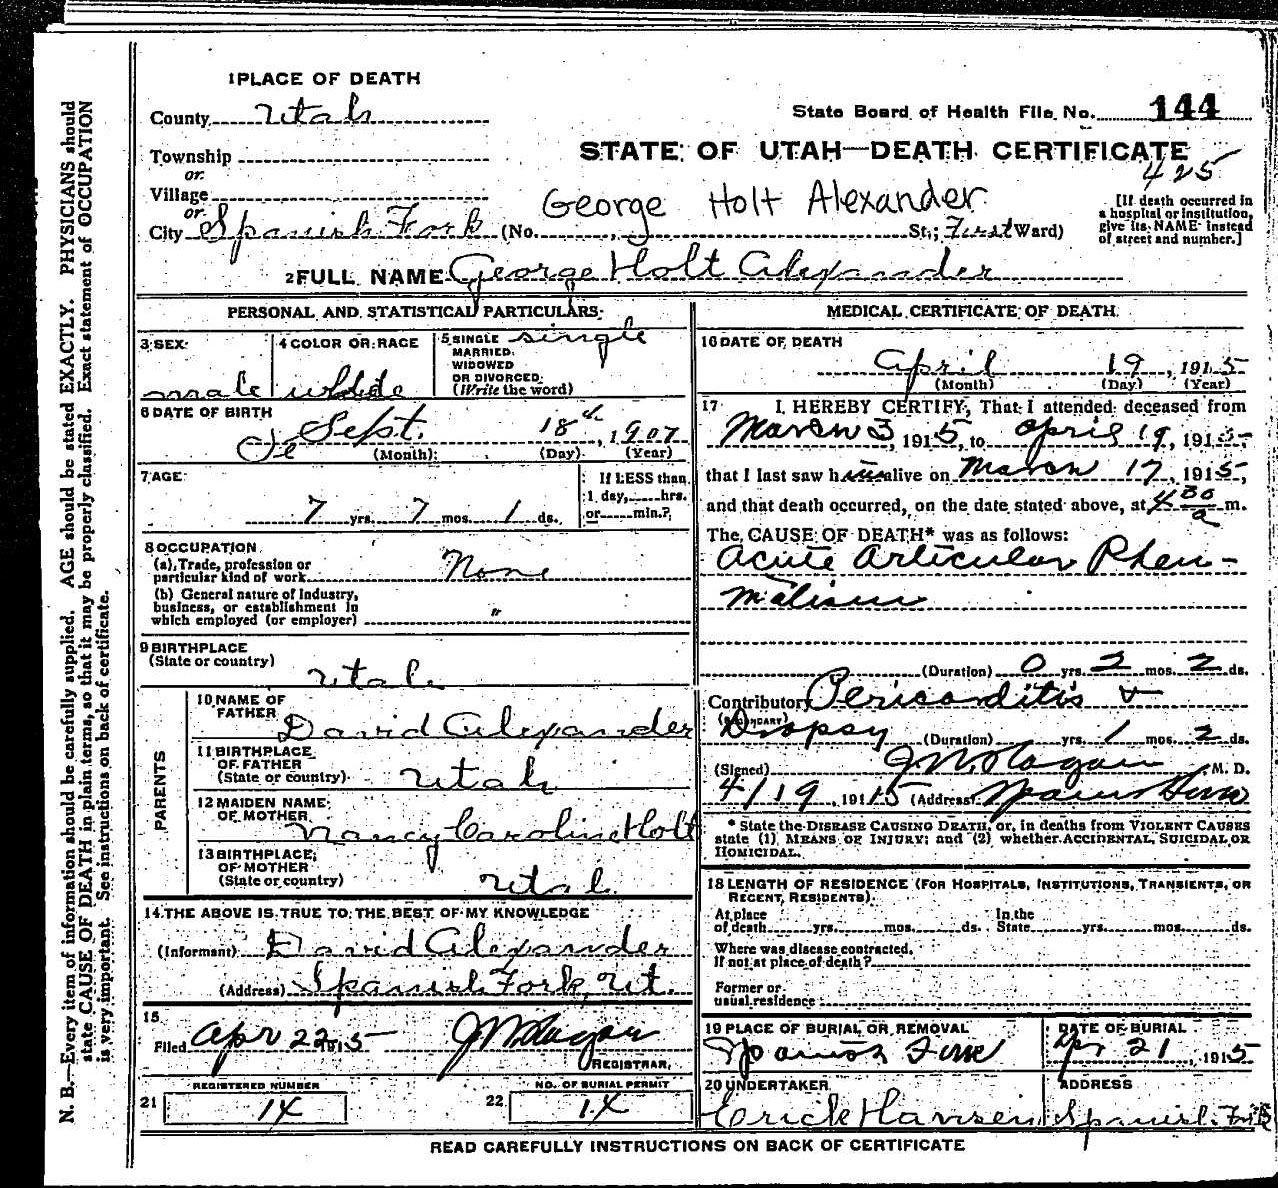 1 PLACE OF DEATH
County Utah
State Board of Health File No. 144
Township
STATE OF UTAH—DEATH CERTIFICATE
or
425
Village
or
George Holt Alexander
[If death occurred in
a hospital or institution,
give its NAME instead
of street and number.]
City Spanish Fork (No. St.; First Ward)
2 FULL NAME George Holt Alexander
PERSONAL AND STATISTICAL PARTICULARS
3 SEX
male
4 COLOR OR RACE
white
5 SINGLE
MARRIED
WIDOWED
OR DIVORCED
(Write the word)
single
6 DATE OF BIRTH
Sept. 18th, 1907
(Month) (Day) (Year)
7 AGE
7 yrs. 7 mos. 1 ds.
If LESS than
1 day, hrs.
or min.?
8 OCCUPATION
(a) Trade, profession or
particular kind of work None
(b) General nature of industry,
business, or establishment in
which employed (or employer) "
9 BIRTHPLACE
(State or country)
Utah
PARENTS
10 NAME OF
FATHER
David Alexander
11 BIRTHPLACE
OF FATHER
(State or country) Utah
12 MAIDEN NAME
OF MOTHER
Nancy Caroline Holt
13 BIRTHPLACE
OF MOTHER
(State or country)
Utah
14 THE ABOVE IS TRUE TO THE BEST OF MY KNOWLEDGE
(Informant) David Alexander
(Address) Spanish Fork, Ut.
15
Filed Apr 22 1915
REGISTRAR.
REGISTERED NUMBER
21 14
NO. OF BURIAL PERMIT
22 14
MEDICAL CERTIFICATE OF DEATH
16 DATE OF DEATH
April 19, 1915
(Month) (Day) (Year)
17 I HEREBY CERTIFY, That I attended deceased from
March 3, 1915, to April 19, 1915,
that I last saw him alive on March 17, 1915,
and that death occurred, on the date stated above, at 4 30 a m.
The CAUSE OF DEATH* was as follows:
Acute Articular Rheu-
matism
(Duration) 0 yrs. 2 mos. 2 ds.
Contributory Pericarditis &
(SECONDARY)
Dropsy (Duration) yrs. 1 mos. 2 ds.
(Signed) M. D.
4/19, 1915 (Address) Spanish Fork
* State the DISEASE CAUSING DEATH, or, in deaths from VIOLENT CAUSES
state (1) MEANS OF INJURY; and (2) whether ACCIDENTAL, SUICIDAL OR
HOMICIDAL.
18 LENGTH OF RESIDENCE (FOR HOSPITALS, INSTITUTIONS, TRANSIENTS, OR
RECENT RESIDENTS)
At place
of death yrs. mos. ds.
In the
State yrs. mos. ds.
Where was disease contracted,
If not at place of death?
Former or
usual residence
19 PLACE OF BURIAL OR REMOVAL
Spanish Fork
DATE OF BURIAL
Apr 21, 1915
20 UNDERTAKER
Erick Hansen
ADDRESS
Spanish Fork
READ CAREFULLY INSTRUCTIONS ON BACK OF CERTIFICATE
N. B.—Every item of information should be carefully supplied. AGE should be stated EXACTLY. PHYSICIANS should
state CAUSE OF DEATH in plain terms, so that it may be properly classified. Exact statement of OCCUPATION
is very important. See instructions on back of certificate.